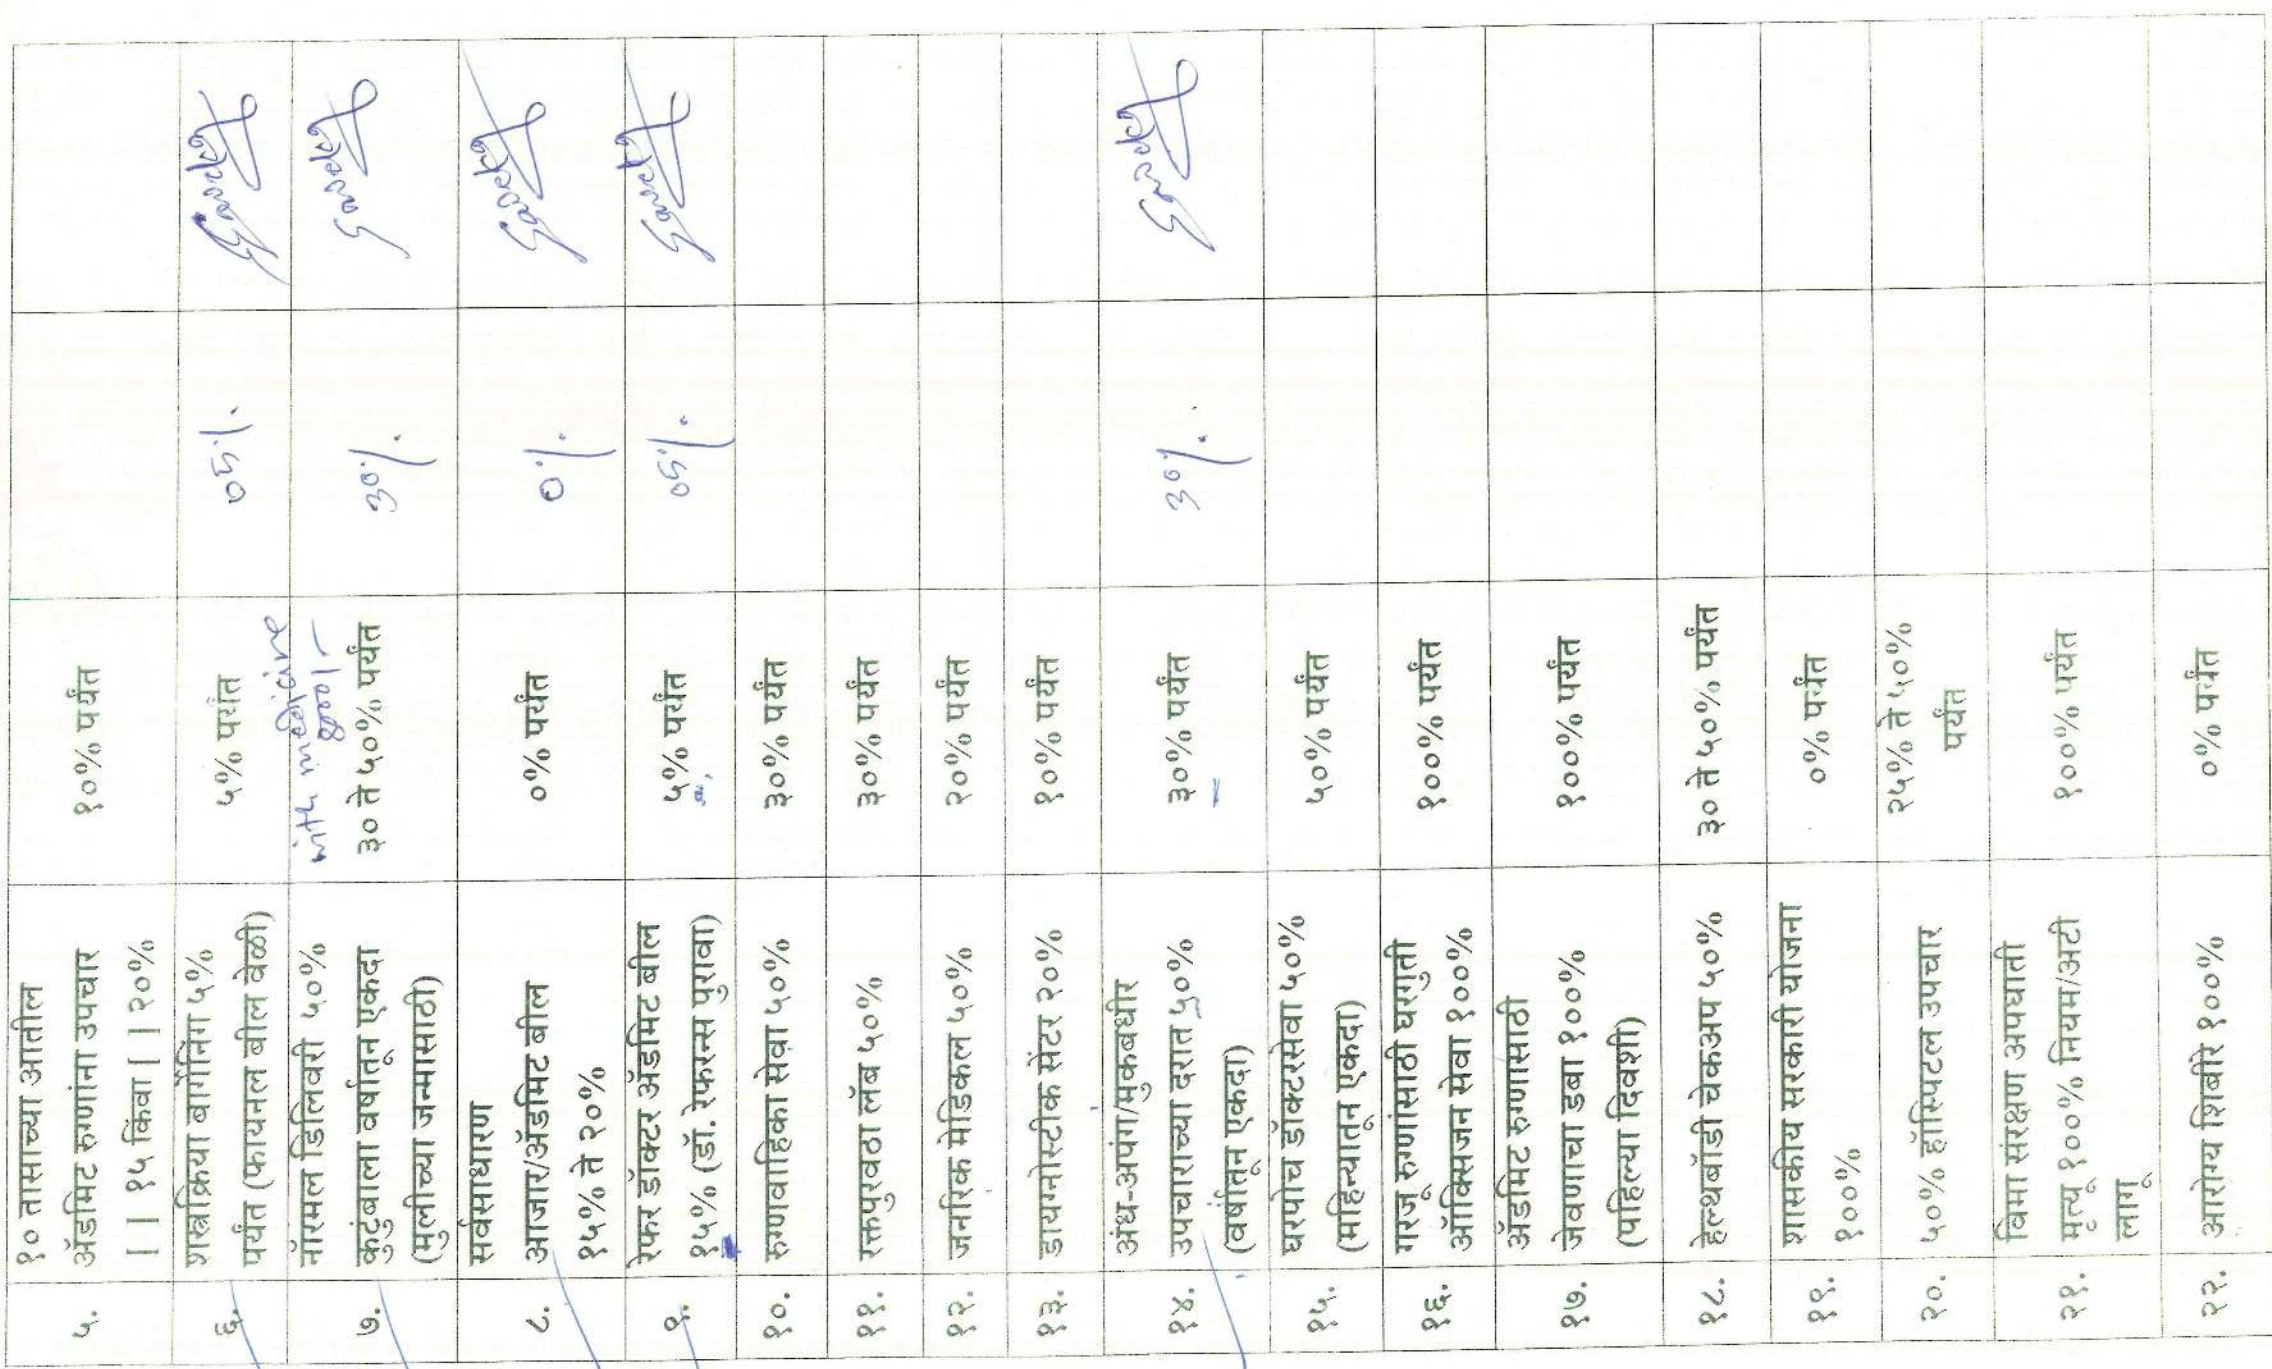 ५.
१० तासाच्या आतील
अ‍ॅडमिट रुग्णांना उपचार
[ ] १५ किंवा [ ] २०%
१०% पर्यंत
६.
शस्त्रक्रिया बार्गेनिंग ५%
पर्यंत (फायनल बील वेळी)
५% पर्यंत
05%.
७.
नॉरमल डिलिवरी ५०%
कुटुंबाला वर्षातून एकदा
(मुलीच्या जन्मासाठी)
with medicine
३० ते ५०% पर्यंत
30%.
८.
सर्वसाधारण
आजार/अ‍ॅडमिट बील
१५% ते २०%
०% पर्यंत
0%.
९.
रेफर डॉक्टर अ‍ॅडमिट बील
१५% (डॉ. रेफरन्स पुरावा)
५% पर्यंत
05%.
१०.
रुग्णवाहिका सेवा ५०%
३०% पर्यंत
११.
रक्तपुरवठा लॅब ५०%
३०% पर्यंत
१२.
जनरिक मेडिकल ५०%
२०% पर्यंत
१३.
डायग्नोस्टीक सेंटर २०%
१०% पर्यंत
१४.
अंध-अपंग/मुकबधीर
उपचाराच्या दरात ५०%
(वर्षातून एकदा)
३०% पर्यंत
30%.
१५.
घरपोच डॉक्टरसेवा ५०%
(महिन्यातून एकदा)
५०% पर्यंत
१६.
गरजू रुग्णांसाठी घरगुती
ऑक्सिजन सेवा १००%
१००% पर्यंत
१७.
अ‍ॅडमिट रुग्णासाठी
जेवणाचा डबा १००%
(पहिल्या दिवशी)
१००% पर्यंत
१८.
हेल्थबॉडी चेकअप ५०%
३० ते ५०% पर्यंत
१९.
शासकीय सरकारी योजना
१००%
०% पर्यंत
२०.
५०% हॉस्पिटल उपचार
२५% ते ५०%
पर्यंत
२१.
विमा संरक्षण अपघाती
मृत्यू १००% नियम/अटी
लागू
१००% पर्यंत
२२.
आरोग्य शिबीरे १००%
०% पर्यंत